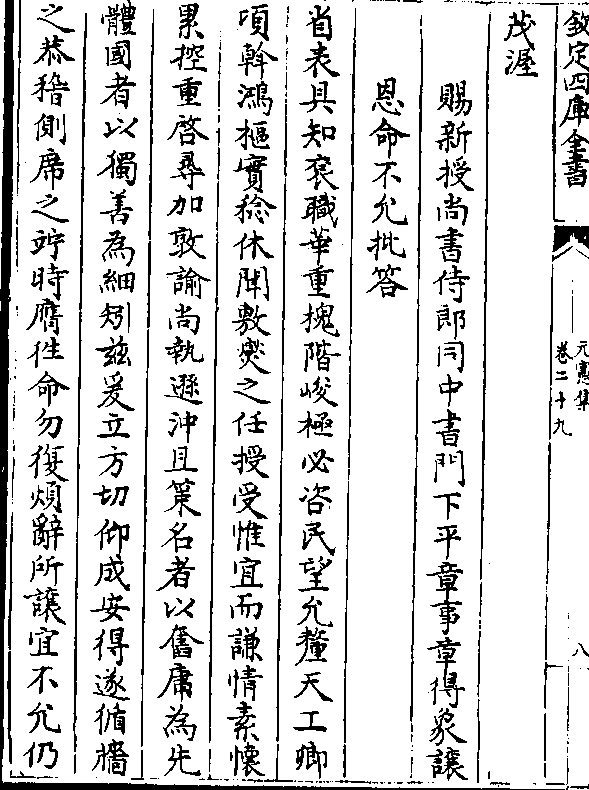 欽定四庫全書
元憲集
卷二十九
八
茂渥
賜新授尚書侍郎同中書門下平章事章得象讓
恩命不允批答
省表具知衮職華重槐階峻極必咨民望允釐天工卿
頃斡鴻樞實稔休聞敷燮之任授受惟宜而謙情素懷
累控重啓尋加敦諭尚執遜沖且策名者以奮庸為先
體國者以獨善為細矧兹爰立方切仰成安得遂循牆
之恭稽側席之竚時膺徃命勿復煩辭所讓宜不允仍